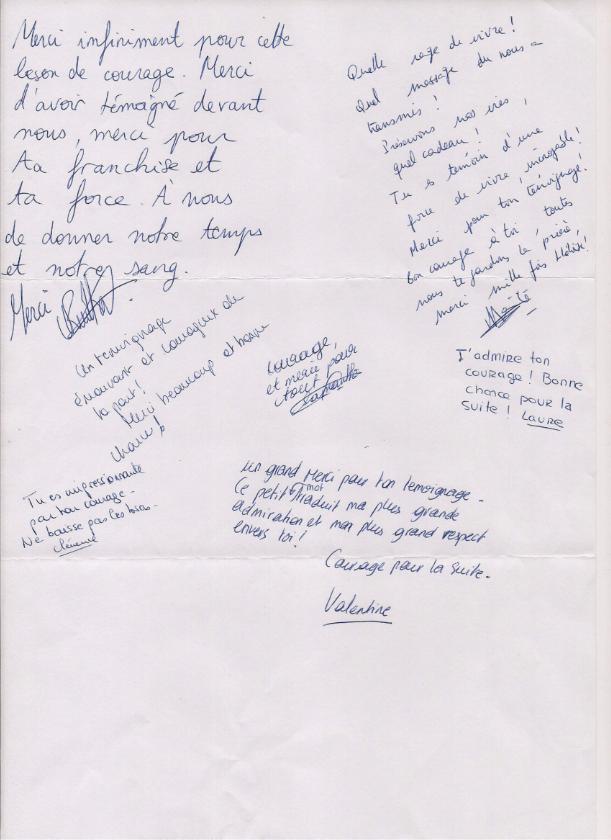 Merci infiniment pour cette
leçon de courage. Merci
d'avoir témoigné devant
nous, merci pour
ta franchise et
ta force. À nous
de donner notre temps
et notre sang.
Merci
Quelle rage de vivre !
Quel message tu nous a
transmis !
Préservons nos vies,
quel cadeau !
Tu es temoin d'une
force de vivre, incroyable !
Merci pour ton témoignage !
Bon courage à toi, toutes
nous te gardons la prière,
merci mille fois
Un temoignage
émouvant et courageux de
ta part !
Merci beaucoup et bonne
chance !
Courage,
et merci pour
tout
J'admire ton
courage ! Bonne
chance pour la
suite ! Laure
Tu es impressionnante
par ton courage.
Ne baisse pas les bras.
Un grand Merci pour ton temoignage.
Ce petit mot traduit ma plus grande
admiration et mon plus grand respect
envers toi !
Courage pour la suite.
Valentine